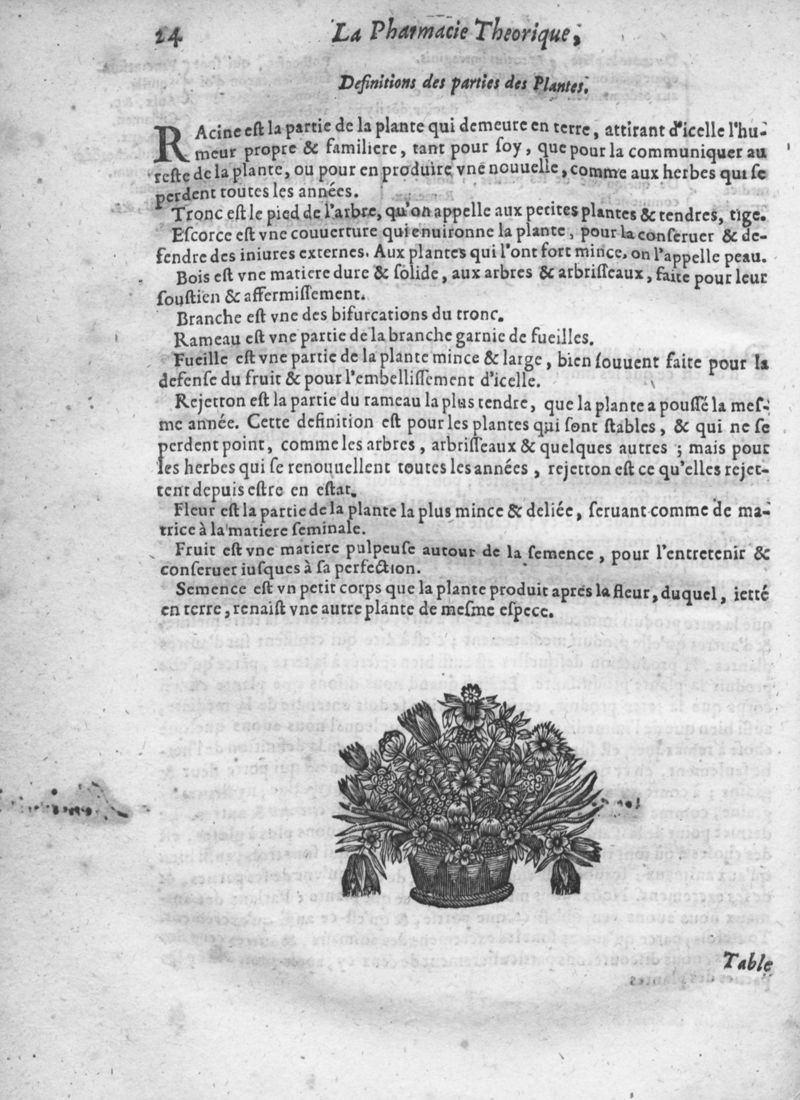 24 La Pharmacie Theorique,
Definitions des parties des Plantes.
RAcine eſt la partie de la plante qui demeure en terre, attirant d'icelle l'hu-
meur propre & familiere, tant pour ſoy, que pour la communiquer au
reſte de la plante, ou pour en produire vne nouuelle, comme aux herbes qui ſe
perdent toutes les années.
Tronc eſt le pied de l'arbre, qu'on appelle aux petites plantes & tendres, tige.
Eſcorce eſt vne couuerture qui enuironne la plante, pour la conſeruer & de-
fendre des iniures externes. Aux plantes qui l'ont fort mince, on l'appelle peau.
Bois eſt vne matiere dure & ſolide, aux arbres & arbriſſeaux, faite pour leur
ſouſtien & affermiſſement.
Branche eſt vne des bifurcations du tronc.
Rameau eſt vne partie de la branche garnie de fueilles.
Fueille eſt vne partie de la plante mince & large, bien ſouuent faite pour la
defenſe du fruit & pour l'embelliſſement d'icelle.
Rejetton eſt la partie du rameau la plus tendre, que la plante a pouſſé la meſ-
me année. Cette definition eſt pour les plantes qui ſont ſtables, & qui ne ſe
perdent point, comme les arbres, arbriſſeaux & quelques autres; mais pour
les herbes qui ſe renouuellent toutes les années, rejetton eſt ce qu'elles rejet-
tent depuis eſtre en eſtat.
Fleur eſt la partie de la plante la plus mince & deliée, ſeruant comme de ma-
trice à la matiere ſeminale.
Fruit eſt vne matiere pulpeuſe autour de la ſemence, pour l'entretenir &
conſeruer iuſques à ſa perfection.
Semence eſt vn petit corps que la plante produit apres la fleur, duquel, ietté
en terre, renaiſt vne autre plante de meſme eſpece.
Table